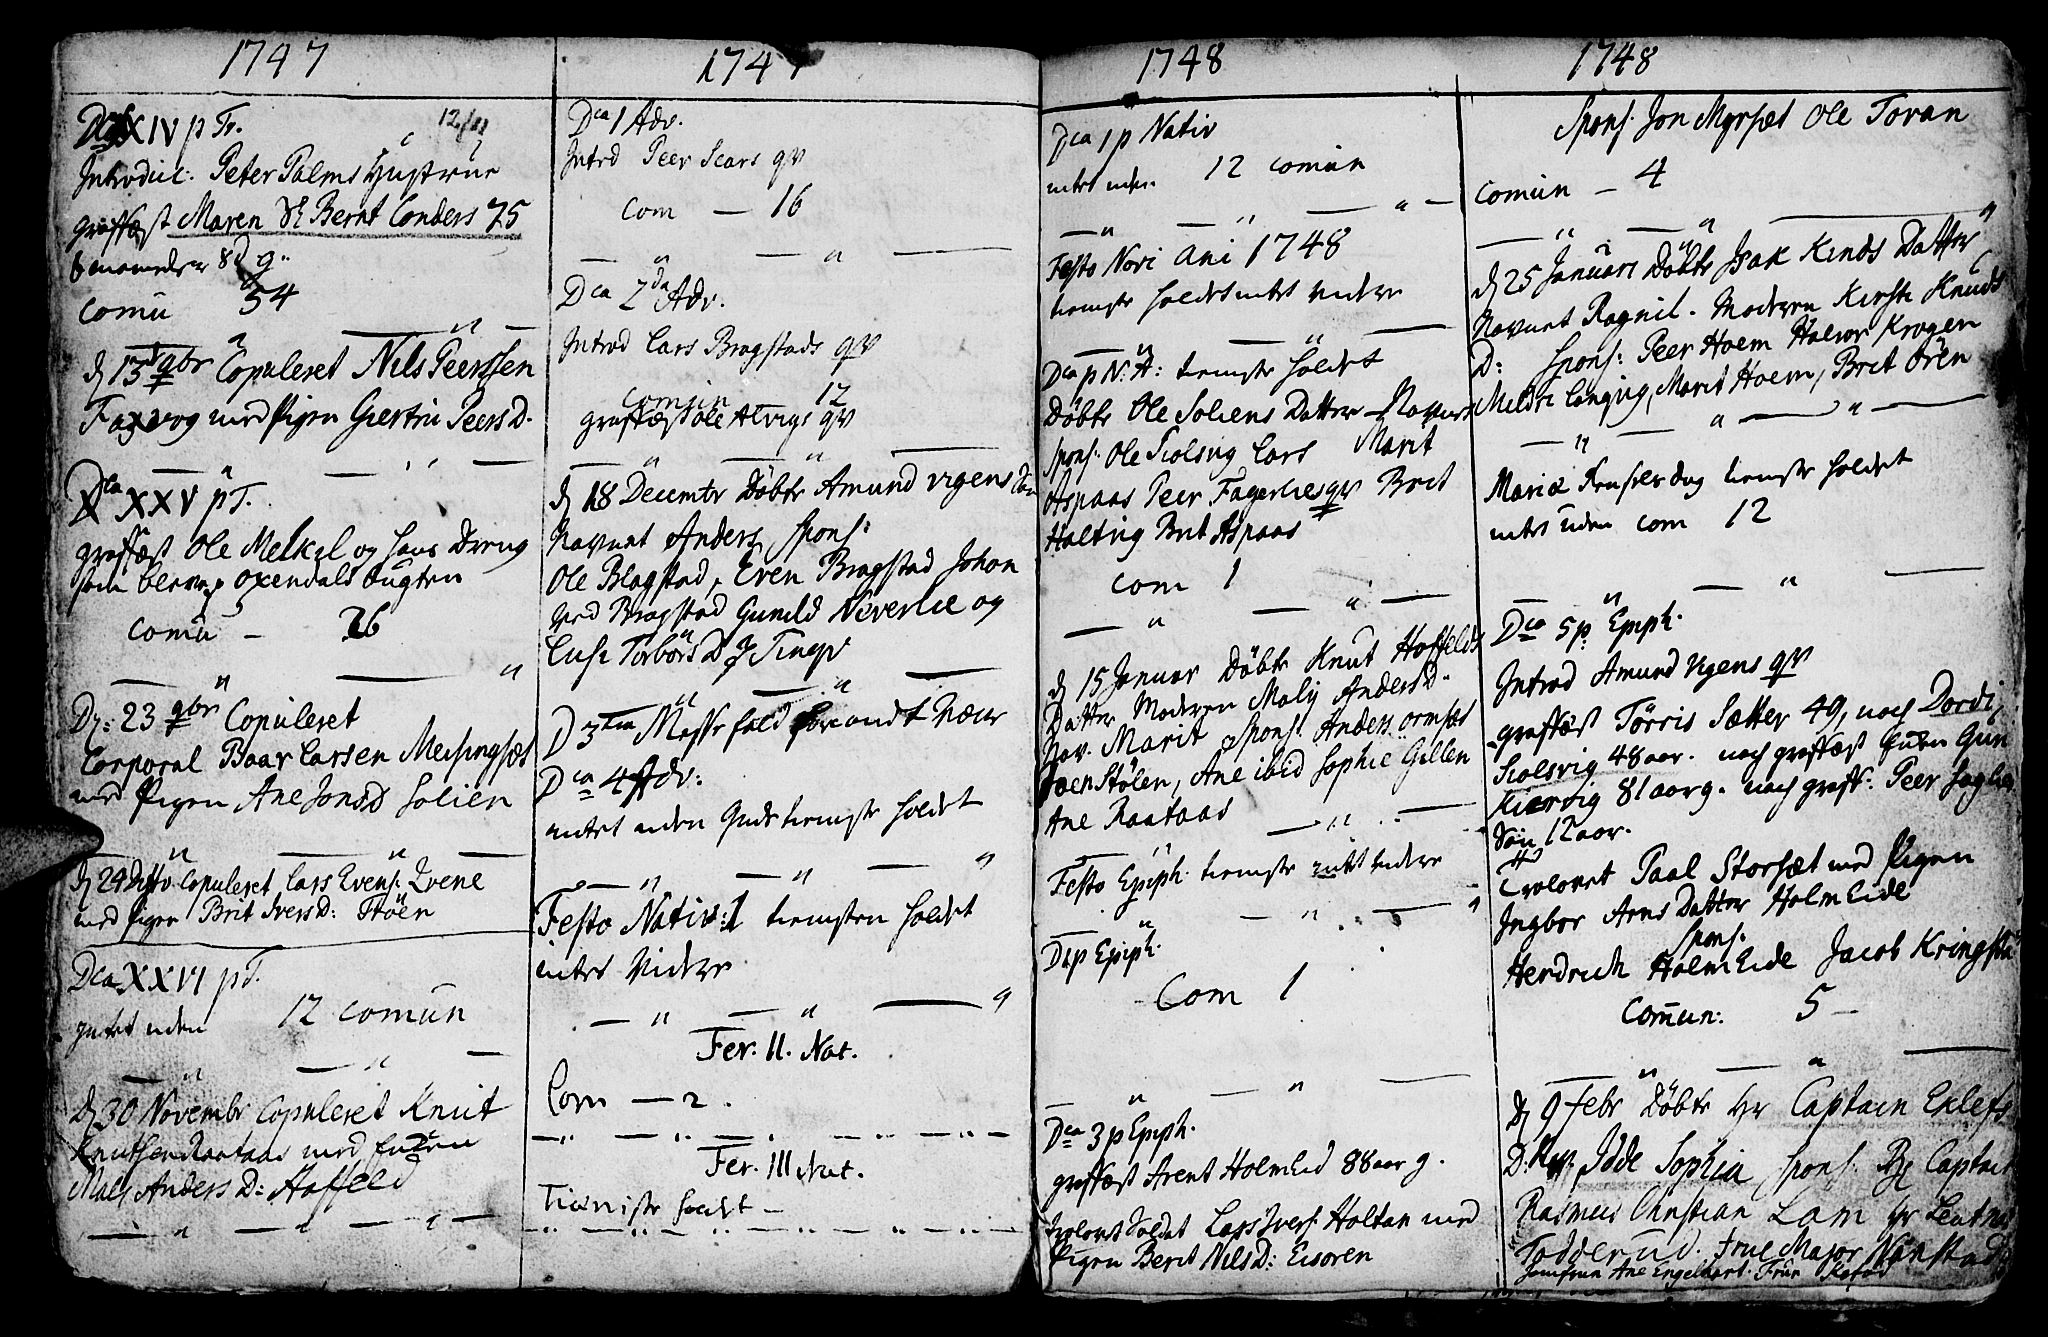 1747
Dca XXIV p Tr. 12/11
Introduc: Peter Palms Hustrue
graffæst Maren Bernt Conders 75
54
Comu
d 13 9br Copuleret Nils Peerssen
Faxvog med Pigen Giertru Peers D.
Dca XXV p T.
graffæst Ole Melkel og hans Dreng
som Oxendals
comu – 26
D: 23 9br Copuleret
Corporal Baar Larsen Meisingsæt
med Pigen Ane Jonsd Solien
d 24 ditto Copuleret Lars Evens: Qvene
med Pigen Brit Ivers D: Stöen
Dca XXVI p T.
intet uden 12 comun
d 30 Novembr Copuleret Knut
Knutsen Raataas med
Mali Anders D: Hoffeld
1747
Dca 1 Adv.
Introd Peer Scars qv
Com — 16
Dca 2da Adv.
Introd Lars Bragstads qv
Comun 12
graffæst Ole Alvigs qv
d 18 Decembr Döbte Amund Vigens
Navnet Anders, Spons:
Ole Blagstad, Even Bragstad Johan
ved Bragstad Gunild Neverlie og
Torbörs D Tingv
D 3tia Messe fald
Dca 4 Adv:
intet uden Guds tieniste holdet
Festo Nativ: 1 tienisten holdet
intet videre
Fer. II. Nat.
Com — 2.
Fer. III Nat.
Tieniste holdt –
1748
Dca 1 p Nativ
intet uden 12 comun
Festo Novi Ani 1748
tieniste holdes intet videre
Dca p N: A: tieniste holdet
Döbte Ole Soliens Datter Navnet
Spons: Ole Siolsvig Lars Marit
Aspaas Peer Fagerlies qv Brit
Holtvig Brit Aspaas
Com 1
d 15 Januar Döbte Knut Hoffelds
Datter Moderen Maly Anders D.
Nav. Marit Spons: Anders Ormsæt
Stölen, Ane ibid Sophie Gillen
Ane Raataas
Festo Epiph. tieniste intet videre
D 1 p Epiph.
Com 1
Dca 3 p Epiph.
graffæst Arent Holmeid 88 aar g.
Trolovet Soldat Lars Ivers: Holtan med
Pigen Berit Nils D: Eisoren
1748
Spons: Jon Myrsæt Ole Toran
Comun – 4
d 25 Januari Döbte Isak Kinds Datter
Navnet Ragnil. Moderen Kirsti Knuds
D: Spons: Peer Hoem Halvor Krogen
Meldri Langvig, Marit Hoem, Brit Ören
Mariæ Renselses dag tieniste holdet
intet uden com 12
Dca 5 p. Epiph.
Introd Amund Vigens qv
graffæst Törris Sætter 49, noch Dordi
Siolsvig 48 aar. noch graffæst Guden Gun
Kiervig 81 aar g. noch graff: Peer
Sön 12 aar.
Trolovet Paal Storsæt med Pigen
Ingbor Arns Datter Holmeide
Spons.
Hendrich Holmeide Jacob Kringsta
Comun: 5 –
d 9 Febr Döbte Hr Captain
D: Idde Sophia Spons: Captain
Rasmus Christian Lam Hr Leutn
Todderud. Frue Major Nanstad
Jomfrue Ane Engelbart. Frue